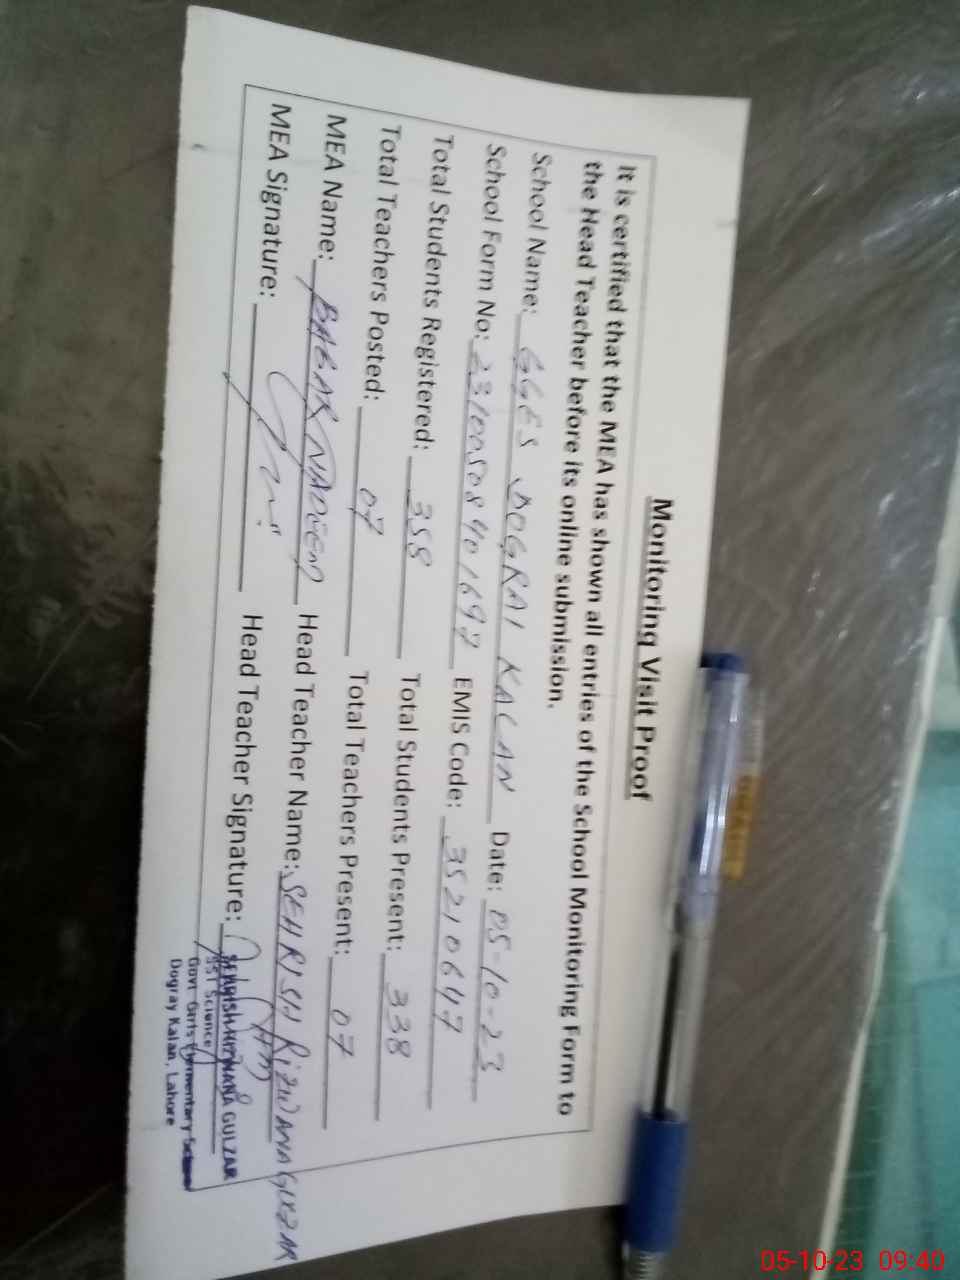 Monitoring Visit Proof
It is certified that the MEA has shown all entries of the School Monitoring Form to
the Head Teacher before its online submission.
School Name: GGES DOGRAI KALAN Date: 05-10-23
School Form No: 23100508401697 EMIS Code: 35210647
Total Students Registered: 358 Total Students Present: 338
Total Teachers Posted: 07 Total Teachers Present: 07
MEA Name: BABAR NADEEM Head Teacher Name: SEHRISH RIZWANA GULZAR
MEA Signature: Head Teacher Signature:
SEHRISH RIZWANA GULZAR
SST Science
Govt Girls Elementary School
Dogray Kalan, Lahore
05-10-23 09:40